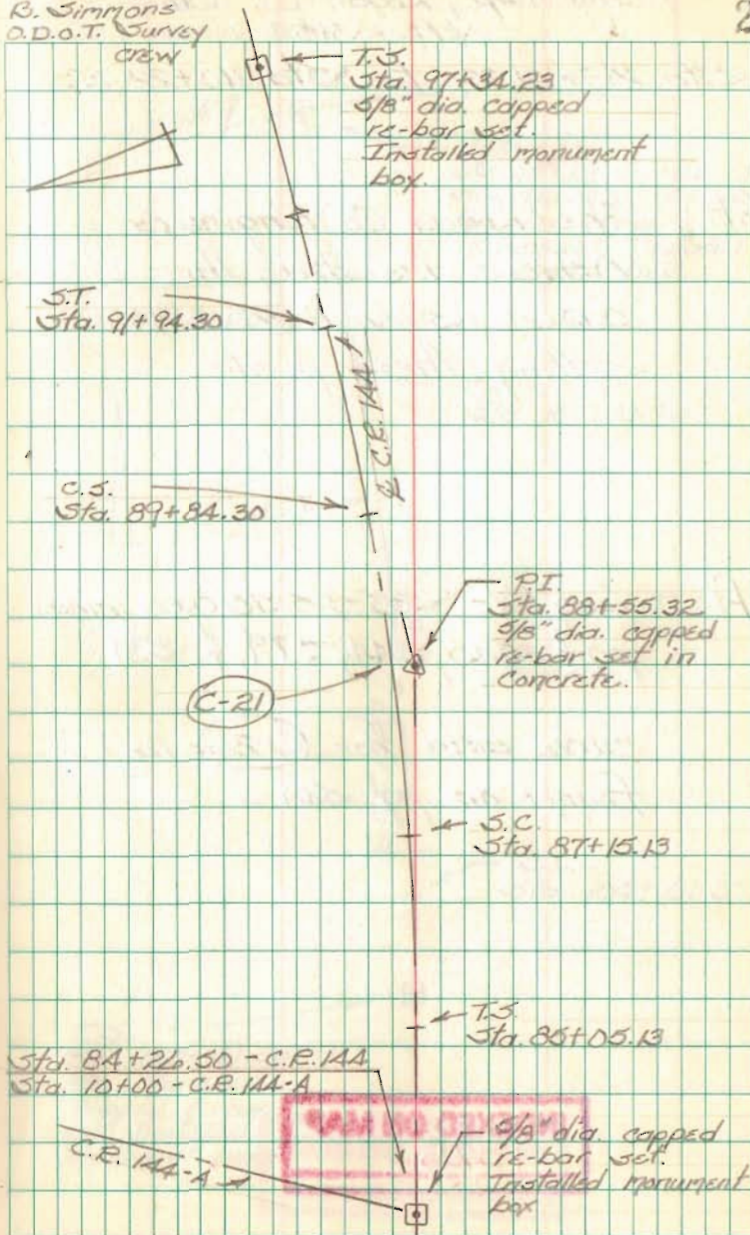 B. Simmons
O.D.O.T. Survey
crew
2
T.S.
Sta. 97+34.23
5/8" dia. capped
re-bar set.
Installed monument
box.
S.T.
Sta. 91+94.30
℄ C.R. 144
C.S.
Sta. 89+84.30
P.I.
Sta. 88+55.32
5/8" dia. capped
re-bar set in
concrete.
C-21
S.C.
Sta. 87+15.13
T.S.
Sta. 85+05.13
Sta. 84+26.50 - C.R. 144
Sta. 10+00 - C.R. 144-A
C.R. 144-A
5/8" dia. capped
re-bar set.
Installed monument
box